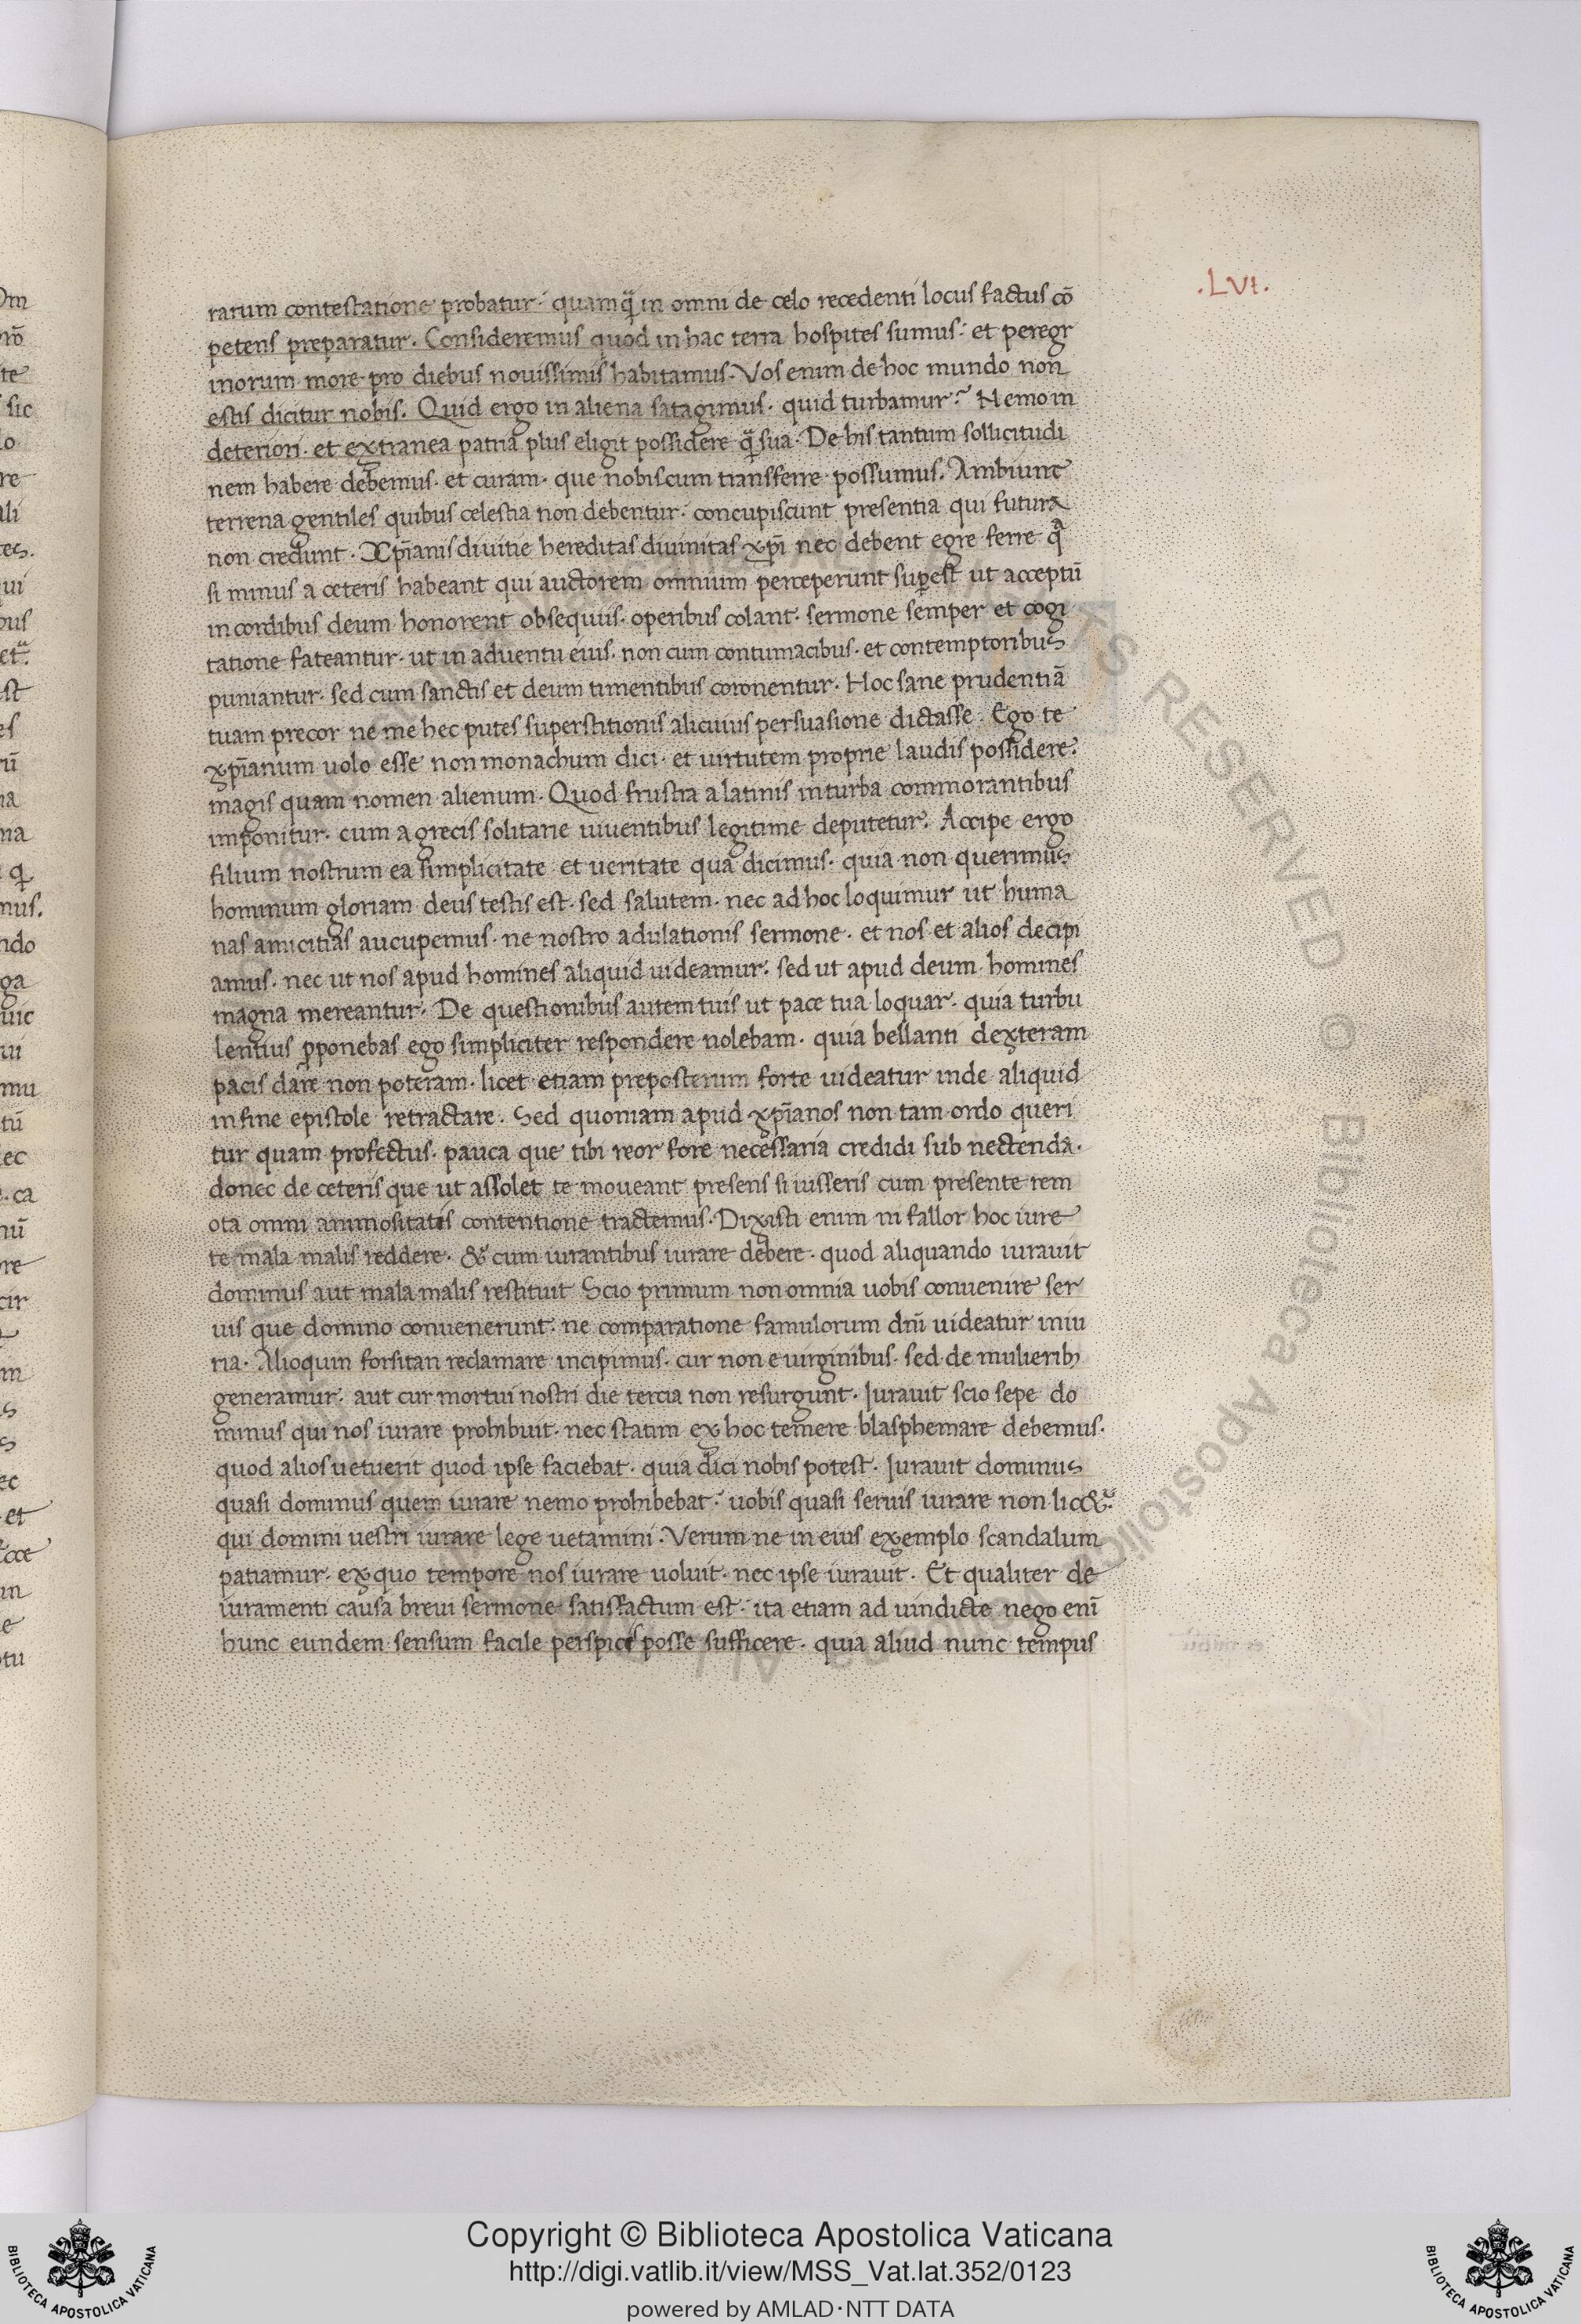 .LVI.
rarum contestatione probatur· quamq̃ in omni de celo recedenti locus factus cō
petens preparatur. Consideremus quod in hac terra hospites sumus· et peregr
inorum more pro diebus nouissimis habitamus. Vos enim de hoc mundo non
estis dicitur nobis. Quid ergo in aliena satagimus· quid turbamur? Nemo in
deteriori· et extranea patria plus eligit possidere q̃ sua· De his tantum sollicitudi
nem habere debemus· et curam· que nobiscum transferre possumus. Ambiunt
terrena gentiles quibus celestia non debentur· concupiscunt presentia qui futura
non credunt· Xp̄ianis diuitie hereditas diuinitas xp̄i nec debent egre ferre qͣ
si minus a ceteris habeant qui auctorem omnium perceperunt suꝑest ut acceptū
in cordibus deum honorent obsequiis· operibus colant· sermone semper et cogi
tatione fateantur· ut in aduentu eius· non cum contumacibus· et contemptoribus
puniantur· sed cum sanctis et deum timentibus coronentur· Hoc sane prudentiā
tuam precor ne me hec putes superstitionis alicuius persuasione dictasse. Ego te
xp̄ianum uolo esse non monachum dici· et uirtutem proprie laudis possidere·
magis quam nomen alienum· Quod frustra a latinis in turba commorantibus
imponitur· cum a grecis solitarie uiuentibus legitime deputetur. Accipe ergo
filium nostrum ea simplicitate et ueritate qua dicimus· quia non querimus
hominum gloriam deus testis est· sed salutem· nec ad hoc loquimur ut huma
nas amicitias aucupemus· ne nostro adulationis sermone· et nos et alios decipi
amus· nec ut nos apud homines aliquid uideamur· sed ut apud deum homines
magna mereantur· De questionibus autem tuis ut pace tua loquar· quia turbu
lentius ꝓponebas ego simpliciter respondere nolebam· quia bellanti dexteram
pacis dare non poteram· licet etiam preposterum forte uideatur inde aliquid
in fine epistole retractare. Sed quoniam apud xp̄ianos non tam ordo queri
tur quam profectus· pauca que tibi reor fore necessaria credidi sub nectenda·
donec de ceteris que ut assolet te moueant presens si iusseris cum presente rem
ota omni animositatis contentione tractemus· Dixisti enim ni fallor hoc iure
te mala malis reddere· & cum iurantibus iurare debere· quod aliquando iurauit
dominus aut mala malis restituit Scio primum non omnia uobis conuenire ser
uis que domino conuenerunt· ne comparatione famulorum dn̄i uideatur iniu
ria· Alioquin forsitan reclamare incipimus· cur non e uirginibus· sed de mulierib;
generamur· aut cur mortui nostri die tercia non resurgunt· Iurauit scio sepe do
minus qui nos iurare prohibuit· nec statim ex hoc temere blasphemare debemus·
quod alios uetuerit quod ipse faciebat· quia dici nobis potest· Iurauit dominus
quasi dominus quem iurare nemo prohibebat· uobis quasi seruis iurare non lic&·
qui domini uestri iurare lege uetamini· Verum ne in eius exemplo scandalum
patiamur· ex quo tempore nos iurare uoluit· nec ipse iurauit· Et qualiter de
iuramenti causa breui sermone satisfactum est· ita etiam ad uindicte nego enī
hunc eundem sensum facile posse sufficere· quia aliud nunc tempus
Copyright © Biblioteca Apostolica Vaticana
http://digi.vatlib.it/view/MSS_Vat.lat.352/0123
powered by AMLAD·NTT DATA